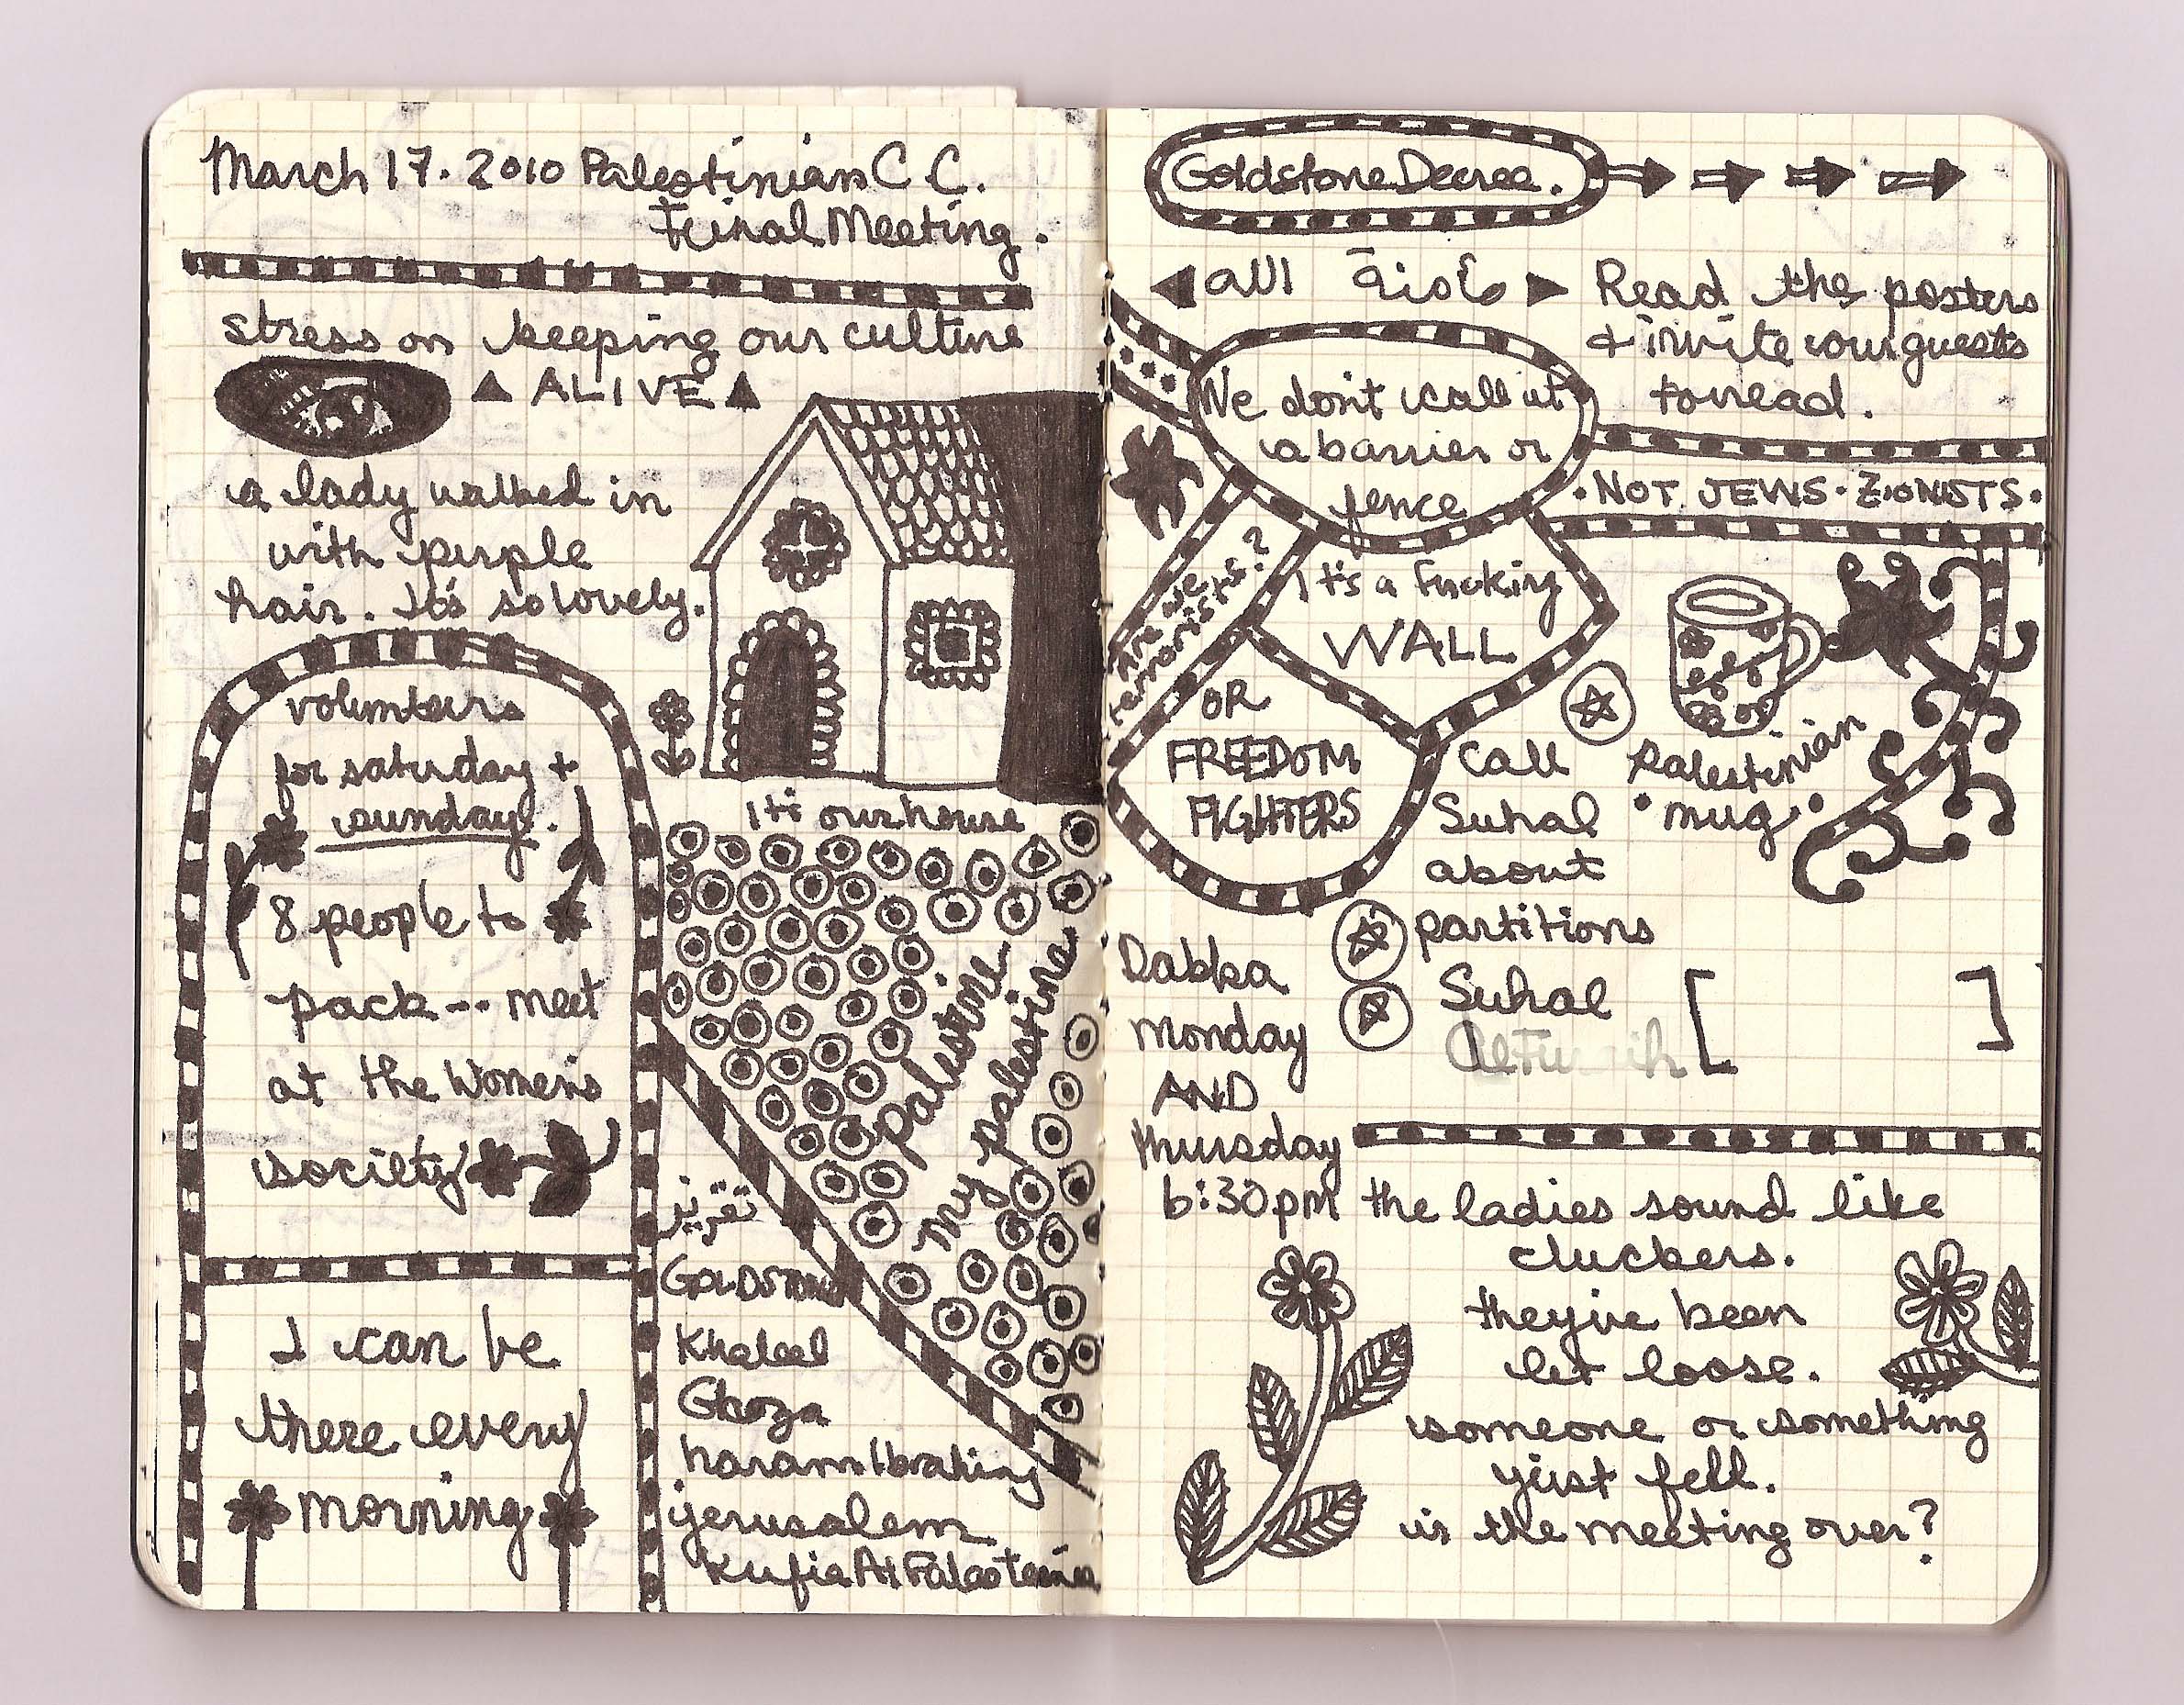 March 17. 2010 Palestinian C C.
Feinal Meeting.
stress on keeping our culture
ALIVE
a lady walked in
with purple
hair. It's so lovely.
volunteers
for saturday +
sunday.
8 people to
pack -- meet
at the Women's
society
I can be
there every
morning
It's our house
palestine
my palestine
تقرير
GOLDSTONE
Khaleel
Ghaza
haram Ibrahimy
jerusalem
Kufia At
Goldstone Decree.
Read the posters
& invite our guests
to read.
We don't call it
a barrier or
fence
It's a Fucking
WALL
Are we
terrorists?
OR
FREEDOM
FIGHTERS
• NOT JEWS • ZIONISTS •
Palestinian
• mug •
Call
Suhal
about
partitions
Suhal
[ ]
Dabka
Monday
AND
thursday
6:30pm
the ladies sound like
cluckers.
they've been
let loose.
someone or something
just fell.
is the meeting over?